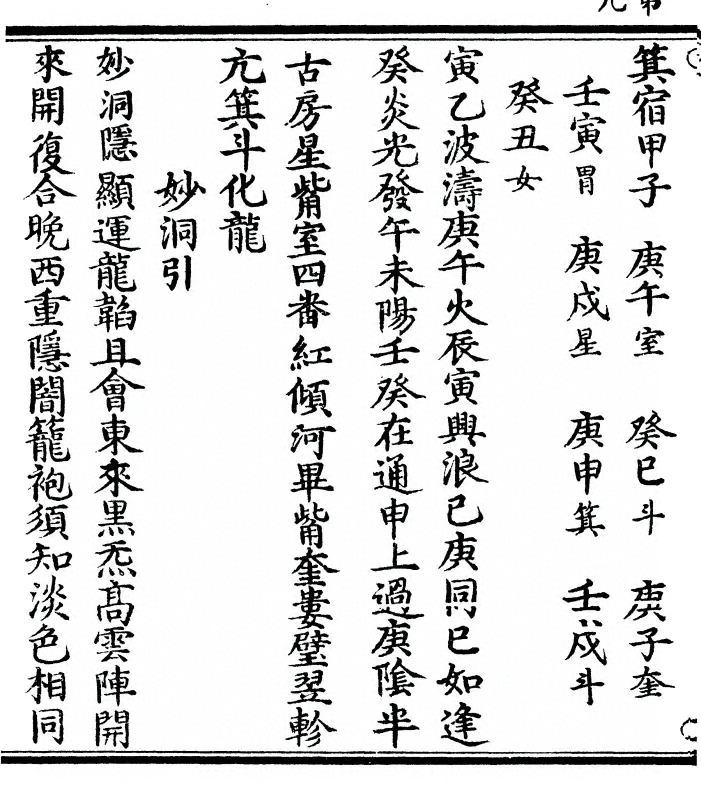 箕宿甲子　庚午室　癸巳斗　庚子奎
壬寅胃　庚戌星　庚申箕　壬戌斗
癸丑女
寅乙波濤庚午火辰寅興浪己庚同巳如逢
癸炎光發午未陽壬癸在通申上過庚陰半
古房星觜室四番紅傾河畢觜奎婁壁翌軫
亢箕斗化龍
妙洞引
妙洞隱顯運龍韜且會東來黑炁高雲陣開
來開復合晚西重隱闇籠袍須知淡色相同